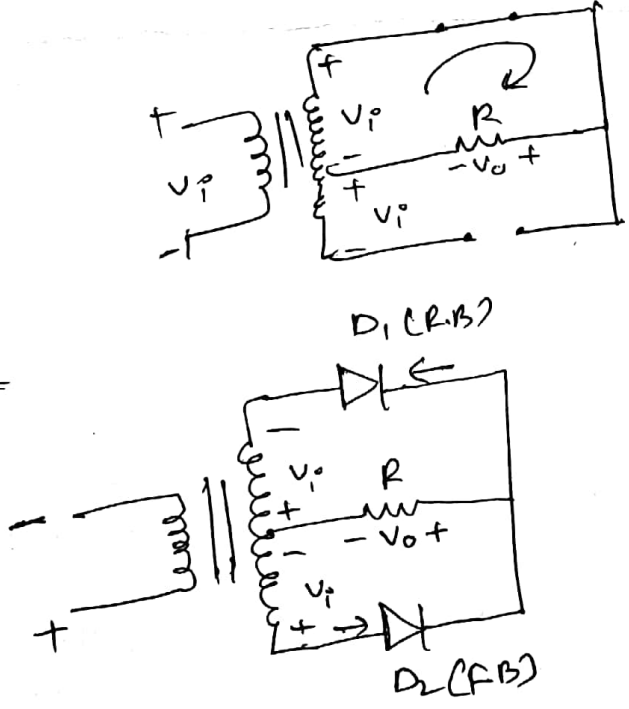 +
+ Vi R
Vi - - Vo +
+
Vi
- -
D1 (R.B)
=
-
Vi R
+
- - - Vo +
Vi
+ +
D2 (F.B)